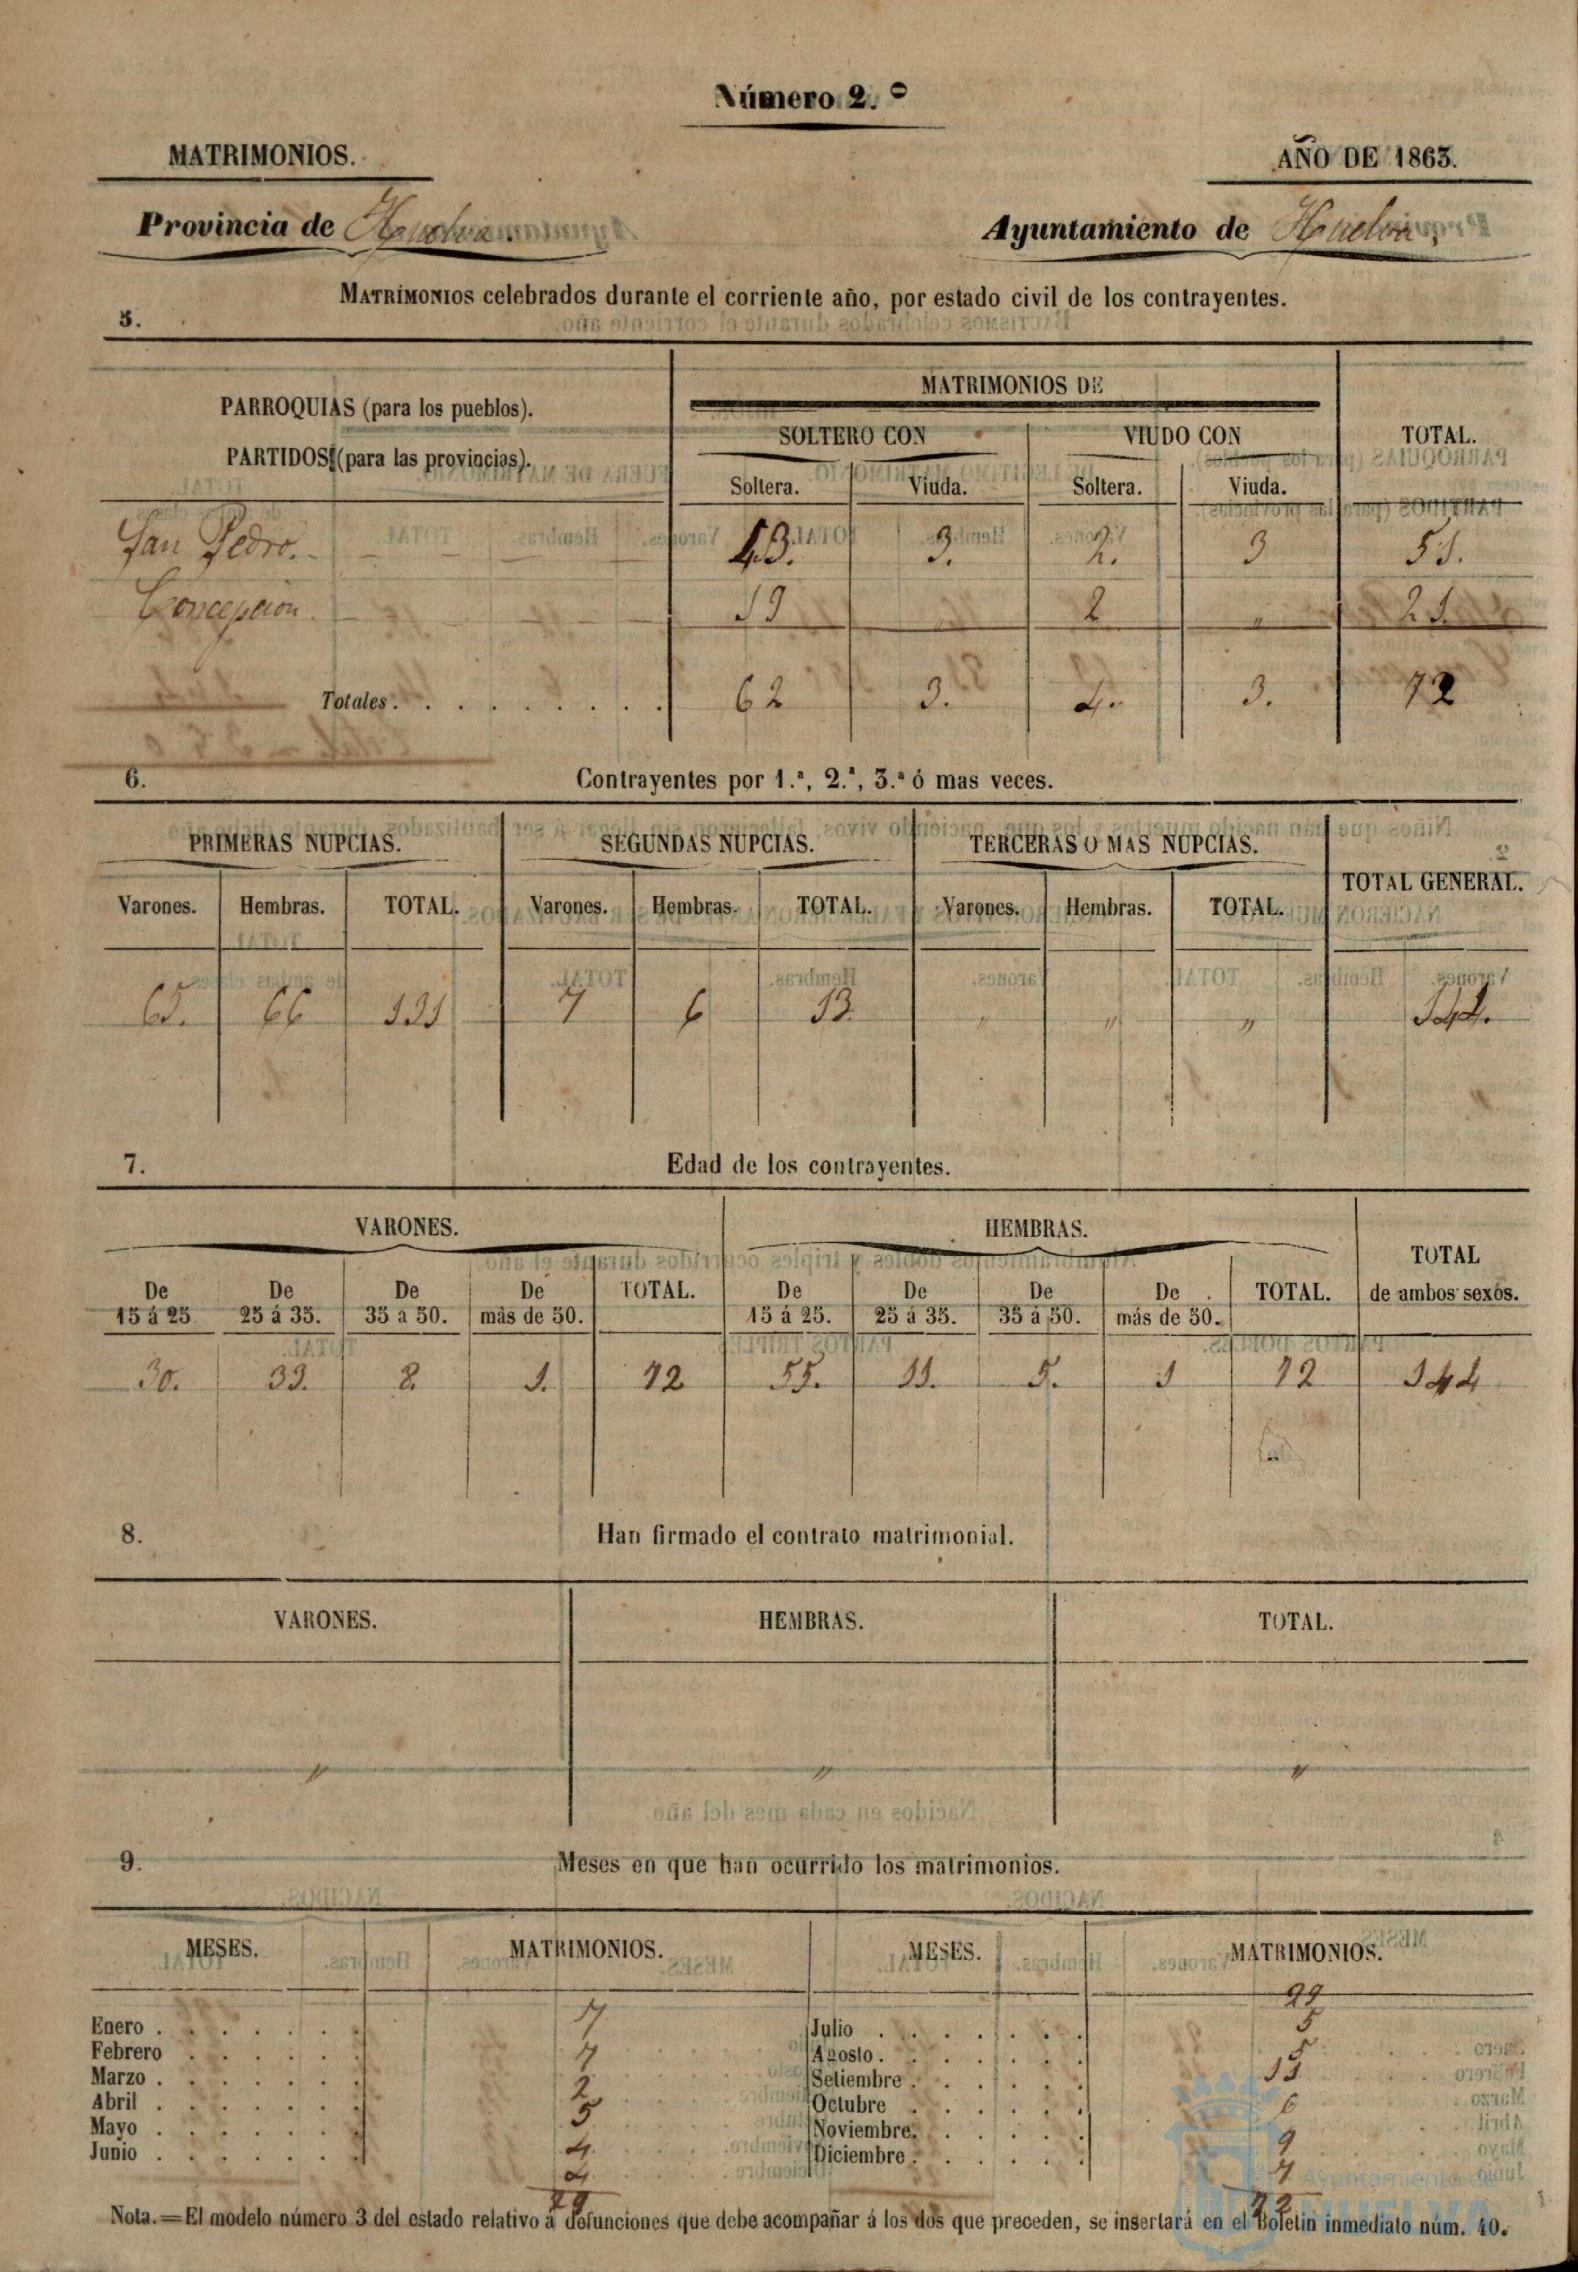 Número 2.º
MATRIMONIOS. AÑO DE 1863.
Provincia de Huelva. Ayuntamiento de Huelva.
MATRIMONIOS celebrados durante el corriente año, por estado civil de los contrayentes.
5.
MATRIMONIOS DE
PARROQUIAS (para los pueblos).
SOLTERO CON VIUDO CON TOTAL.
PARTIDOS (para las provincias).
Soltera. Viuda. Soltera. Viuda.
San Pedro. 43. 3. 2. 3 51.
Concepcion 19 " 2 " 21.
Totales. 62 3. 4. 3. 72
6. Contrayentes por 1.ª, 2.ª, 3.ª ó mas veces.
PRIMERAS NUPCIAS. SEGUNDAS NUPCIAS. TERCERAS O MAS NUPCIAS.
TOTAL GENERAL.
Varones. Hembras. TOTAL. Varones. Hembras. TOTAL. Varones. Hembras. TOTAL.
65. 66 131 7 6 13. " " " 144.
7. Edad de los contrayentes.
VARONES. HEMBRAS.
TOTAL
De De De De TOTAL. De De De De TOTAL. de ambos sexos.
15 á 25 25 á 35. 35 a 50. más de 50. 15 á 25. 25 á 35. 35 á 50. más de 50.
30. 33. 8. 1. 72 55. 11. 5. 1 72 144
8. Han firmado el contrato matrimonial.
VARONES. HEMBRAS. TOTAL.
" " "
9. Meses en que han ocurrido los matrimonios.
MESES. MATRIMONIOS. MESES. MATRIMONIOS.
29
Enero 7 Julio 5
Febrero 7 Agosto. 5
Marzo 2 Setiembre 11
Abril 5 Octubre 6
Mayo 4 Noviembre. 9
Junio 4 Diciembre 7
29 72
Nota.=El modelo número 3 del estado relativo á defunciones que debe acompañar á los dos que preceden, se insertará en el Boletin inmediato núm. 40.
Ayuntamiento de
HUELVA